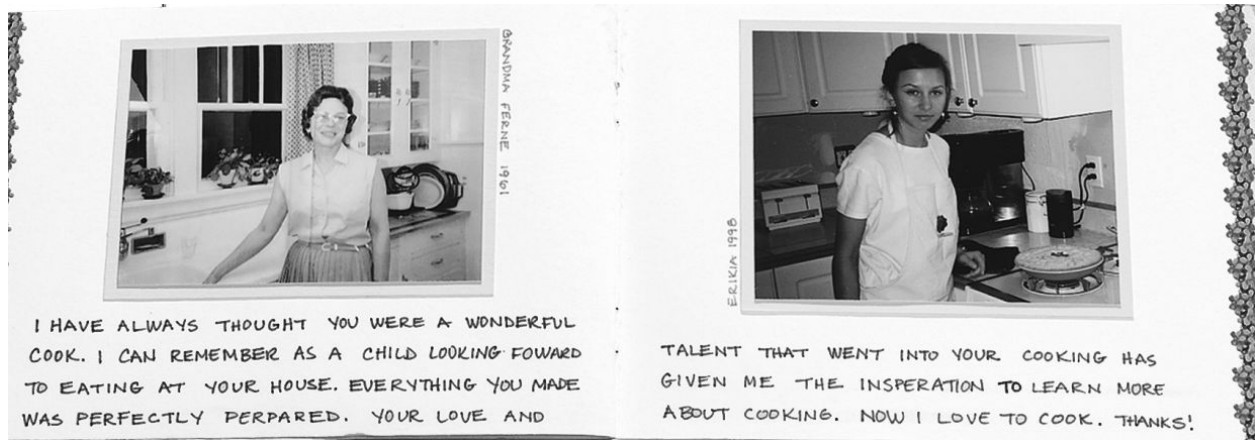 GRANDMA FERNE 1961
I HAVE ALWAYS THOUGHT YOU WERE A WONDERFUL
COOK. I CAN REMEMBER AS A CHILD LOOKING FOWARD
TO EATING AT YOUR HOUSE. EVERYTHING YOU MADE
WAS PERFECTLY PERPARED. YOUR LOVE AND
ERIKIA 1998
TALENT THAT WENT INTO YOUR COOKING HAS
GIVEN ME THE INSPERATION TO LEARN MORE
ABOUT COOKING. NOW I LOVE TO COOK. THANKS!